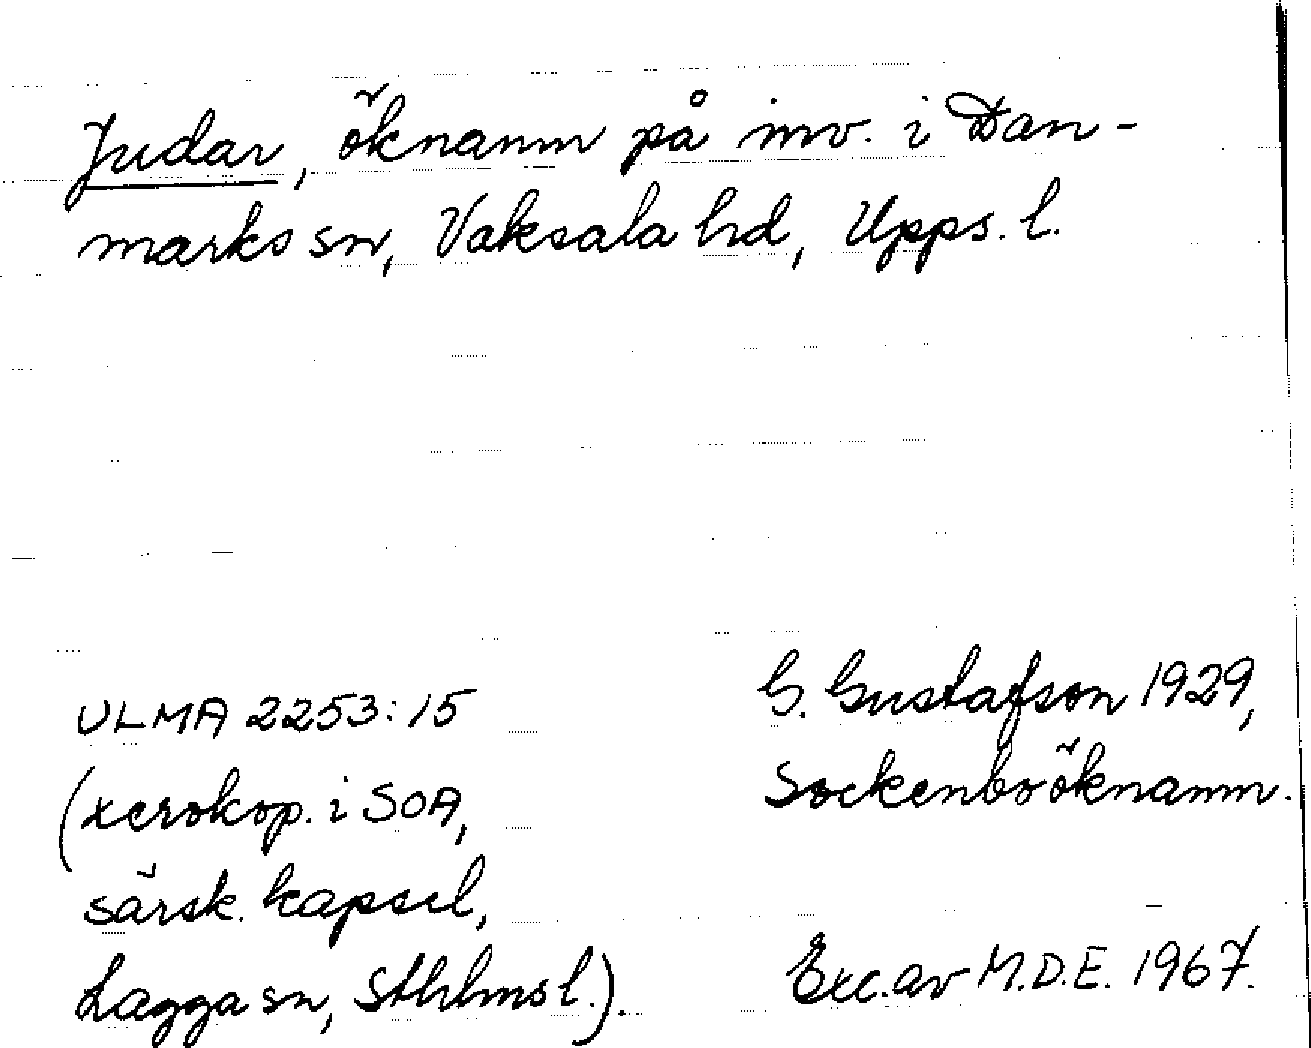 Judar, öknamn på inv. i Dan-
marks sn, Vaksala hd, Upps. l.
ULMA 2253:15
(xerokop. i SOA,
särsk. kapsel,
Lagga sn, Sthlms l.).
G. Gustafson 1929,
Sockenboöknamn.
Exc. av M.D.E. 1967.